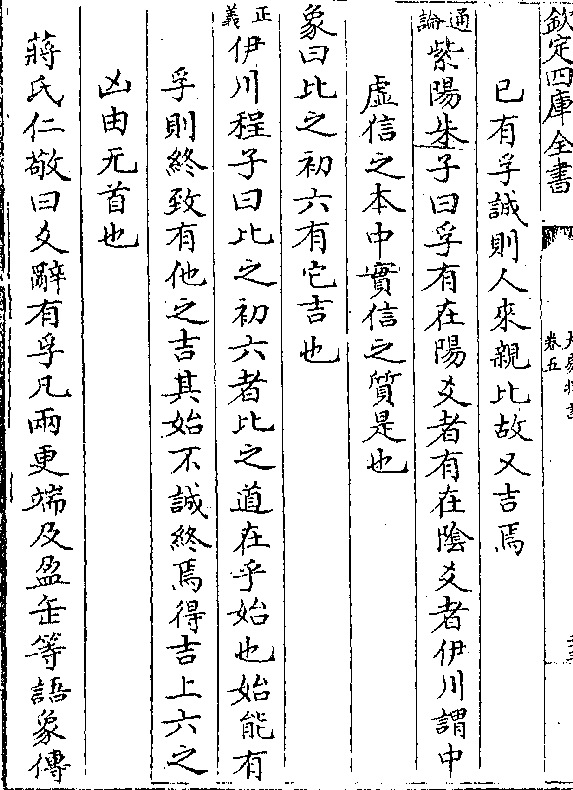 欽定四庫全書
卷五
已有孚誠則人來親比故又吉焉
通論紫陽朱子曰孚有在陽爻者有在陰爻者伊川謂中
虛信之本中實信之質是也
象曰比之初六有它吉也
正義伊川程子曰比之初六者比之道在乎始也始能有
孚則終致有他之吉其始不誠終焉得吉上六之
凶由无首也
蔣氏仁敬曰爻辭有孚凡兩更端及盈缶等語象傳